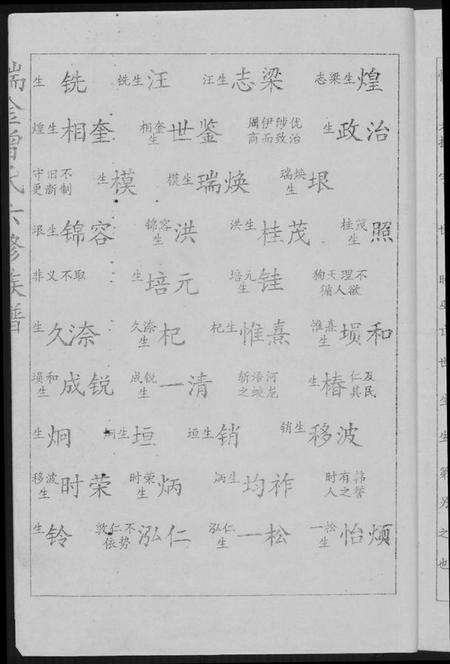 生铣 铣生汪 汪生志梁 志梁生煌
煌生相奎 相奎生世鉴 周伊陟优商而致治 生政治
守旧不更新制 生模 模生瑞焕 瑞焕生垠
垠生锦容 锦容生洪 洪生桂茂 桂茂生照
非义不取 生培元 培元生铓 狥天理不循人欲
生久渿 久渿生杞 杞生惟熹 惟熹生埙和
埙和生成锐 成锐生一清 斩浯河之蛟龙 生椿 仁及其民
生炯 炯生垣 垣生销 销生移波
移波生时荣 时荣生炳 炳生均祚 时有韩人之誉
生铃 敦仁不依势 泓仁 泓仁生一松 一松生怡烦
瑞金曾氏六修族谱